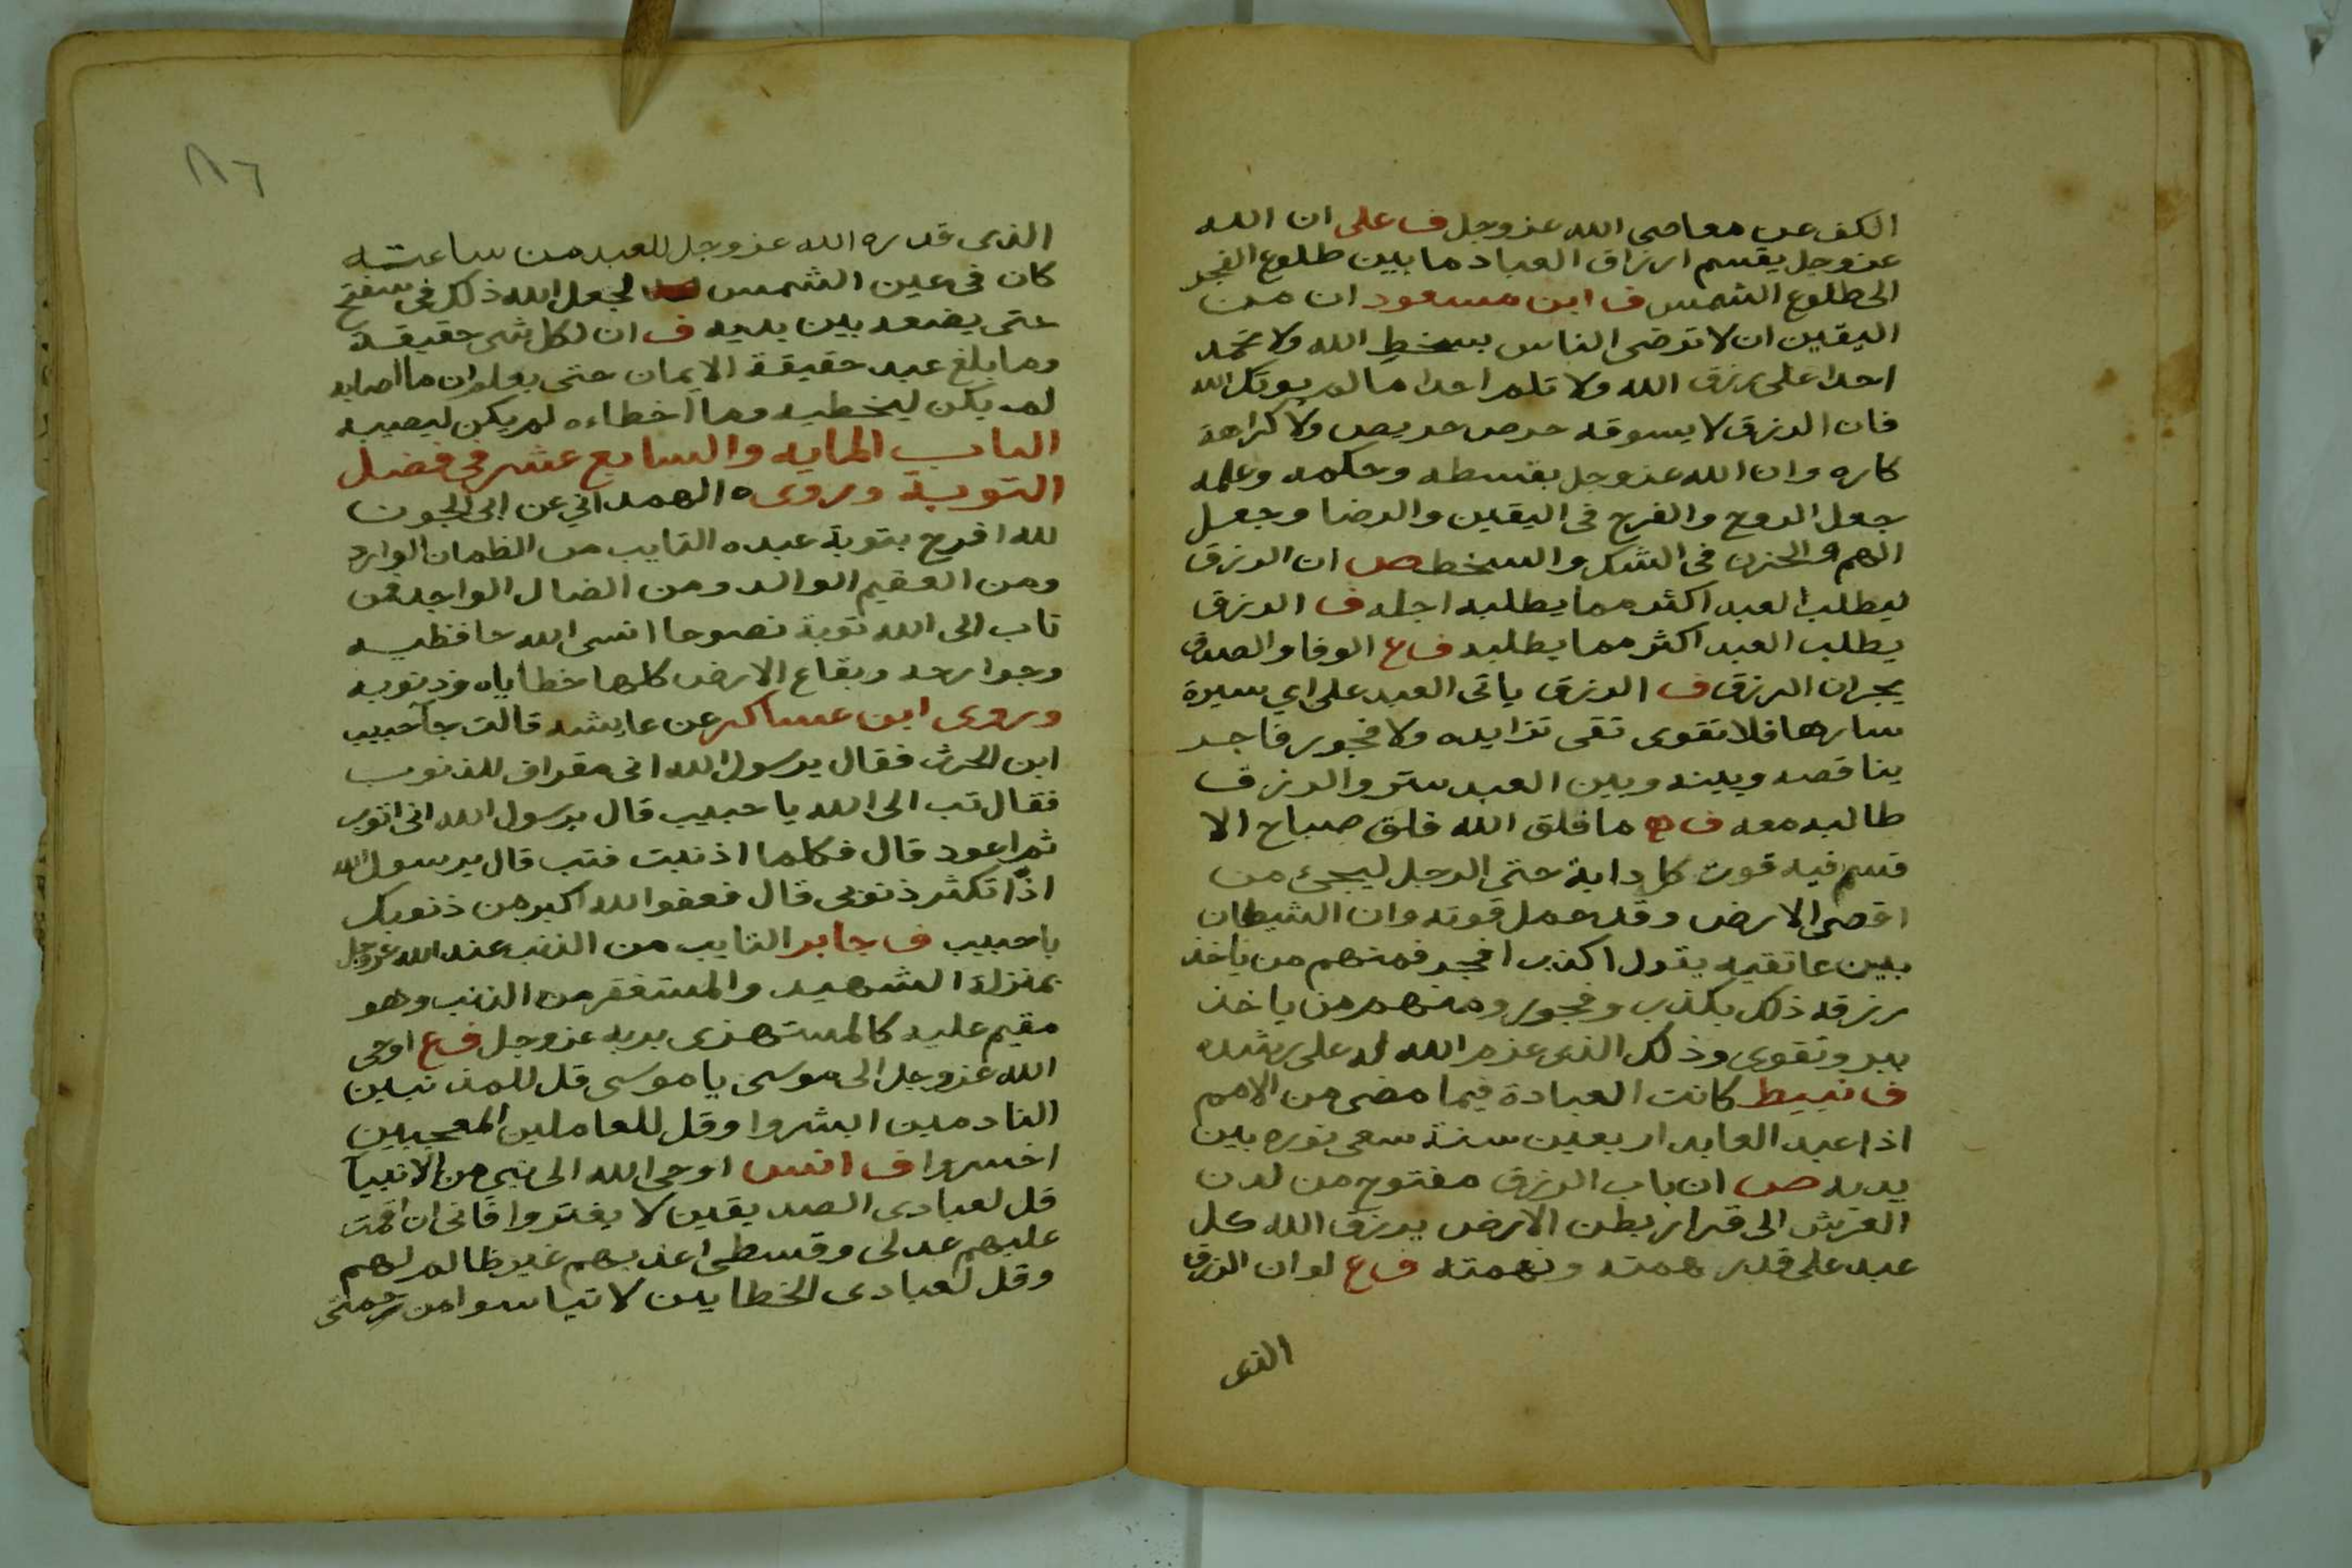 الكف عن معاصى الله عز وجل ف على ان الله
عز وجل يقسم ارزاق العباد ما بين طلوع الفجر
الى طلوع الشمس ف ابن مسعود ان من
اليقين ان لا ترضى الناس بسخط الله ولا تحمد
احدا على رزق الله ولا تلم احدا ما لم يوتك الله
فان الرزق لا يسوقه حرص حريص ولا كراهة
كاره وان الله عز وجل بقسطه وحكمه وعلمه
جعل الروح والفرج فى اليقين والرضا وجعل
الهم والحزن فى الشك والسخط ص ان الرزق
ليطلب العبد اكثر مما يطلبه اجله ف الرزق
يطلب العبد اكثر مما يطلبه ف ع الوفا والصدق
يجران الرزق ف الرزق ياتى العبد على اي سيرة
سارها فلا تقوى تقى تزايده ولا فجور فاجر
يناقصه وبينه وبين العبد ستر والرزق
طالبه معه ف ما فلق الله فلق صباح الا
قسم فيه قوت كل دابة حتى الرجل ليجئ من
اقصى الارض وقد حمل قوته وان الشيطان
بين عاتقيه يقول اكذب افجر فمنهم من ياخذ
رزقه ذلك بكذب وفجور ومنهم من ياخذ
ببر وتقوى وذلك الذى عزم الله له على رشده
ف نبيط كانت العبادة فيما مضى من الامم
اذا عبد العابد اربعين سنة سعى نوره بين
يديه ص ان باب الرزق مفتوح من لدن
العرش الى قرار بطن الارض يرزق الله كل
عبد على قدر همته ونهمته ف ع لو ان الرزق
الذى
٨٦
الذى قدره الله عز وجل للعبد من ساعته
كان فى عين الشمس لجعل الله ذلك فى
حتى يضعه بين يديه ف ان لكل شى حقيقة
وما بلغ عبد حقيقة الايمان حتى يعلم ان ما اصابه
لم يكن ليخطيه وما اخطاءه لم يكن ليصيبه
الباب المايه والسابع عشر فى فضل
التوبة وروى الهمدانى عن ابى الجون
لله افرح بتوبة عبده التايب من الظمان الوارد
ومن العقيم الوالد ومن الضال الواجد فمن
تاب الى الله توبة نصوحا انسى الله حافظيه
وجوارحه وبقاع الارض كلها خطاياه وذنوبه
وروى ابن عساكر عن عايشه قالت جآ حبيب
ابن الحرث فقال يرسول الله انى مقراف للذنوب
فقال تب الى الله يا حبيب قال يرسول الله انى اتوب
ثم اعود قال فكلما اذنبت فتب قال يرسول الله
اذًا تكثر ذنوبى قال فعفو الله اكبر من ذنوبك
يا حبيب ف جابر التايب من الذنب عند الله عز وجل
بمنزلة الشهيد والمستغفر من الذنب وهو
مقيم عليه كالمستهزى بربه عز وجل ف ع اوحى
الله عز وجل الى موسى يا موسى قل للمذنبين
النادمين ابشروا وقل للعاملين المعجبين
اخسروا ف انس اوحى الله الى نبى من الانبيآ
قل لعبادى الصديقين لا يغتروا فانى ان اقمت
عليهم عدلى وقسطى اعذبهم غير ظالم لهم
وقل لعبادى الخطايين لا تياسوا من رحمتى